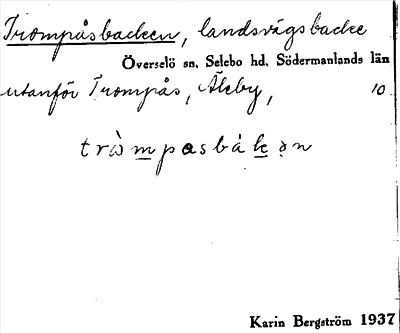 Trompåsbacken, landsvägsbacke
Överselö sn. Selebo hd. Södermanlands län
utanför Trompås, Åleby, 10
trò̀mpasbákən
Karin Bergström 1937